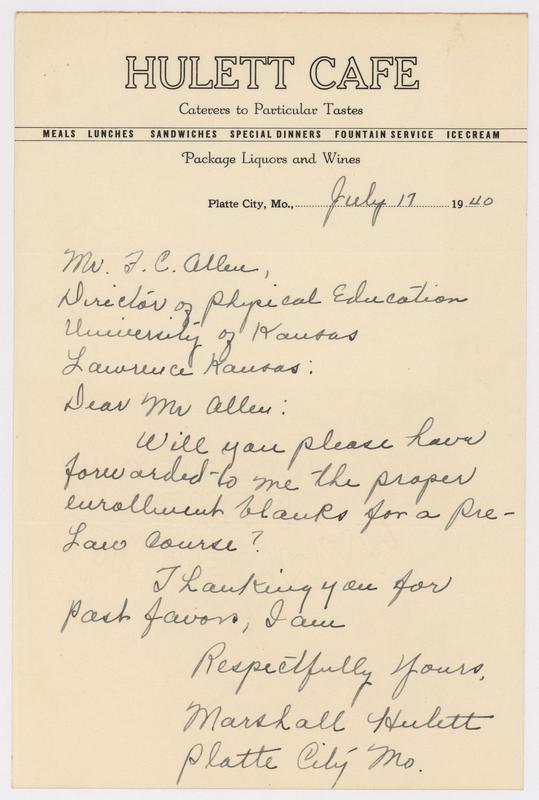 HULETT CAFE
Caterers to Particular Tastes
MEALS LUNCHES SANDWICHES SPECIAL DINNERS FOUNTAIN SERVICE ICE CREAM
Package Liquors and Wines
Platte City, Mo., July 17 1940
Mr. F. C. Allen,
Director of Physical Education
University of Kansas
Lawrence Kansas:
Dear Mr Allen:
Will you please have
forwarded to me the proper
enrollment blanks for a Pre-
Law Course?
Thanking you for
past favors, I am
Respectfully Yours,
Marshall Hulett
Platte City Mo.